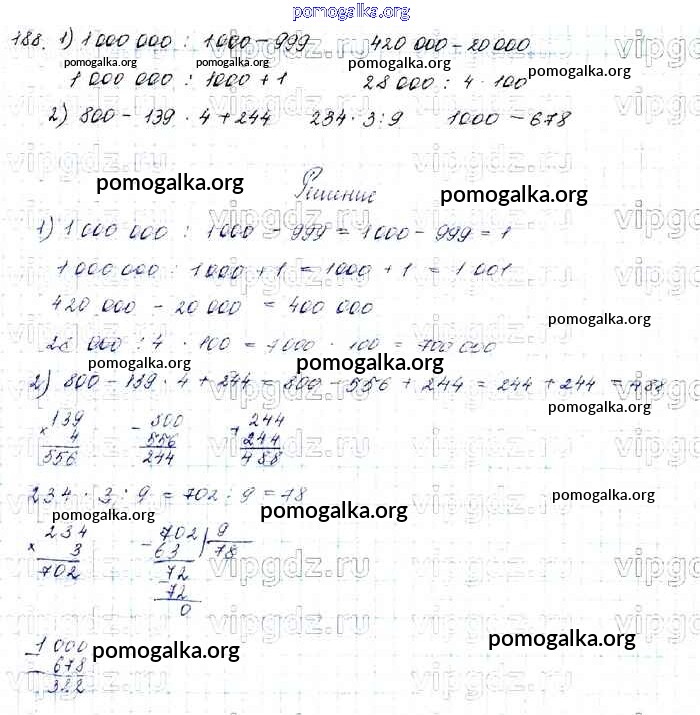 pomogalka.org
188. 1) 1 000 000 : 1000 - 999 420 000 - 20 000
pomogalka.org pomogalka.org pomogalka.org
1 000 000 : 1000 + 1 28 000 : 4 · 100
2) 800 - 139 · 4 + 244 234 · 3 : 9 1000 - 678
vipgdz.ru
pomogalka.org Решение pomogalka.org
1) 1 000 000 : 1000 - 999 = 1000 - 999 = 1
1 000 000 : 1000 + 1 = 1000 + 1 = 1 001
420 000 - 20 000 = 400 000
pomogalka.org
28 000 : 4 · 100 = 7000 · 100 = 700 000
pomogalka.org pomogalka.org
2) 800 - 139 · 4 + 244 = 800 - 556 + 244 = 244 + 244 = 488
pomogalka.org
139 - 800 244
× 4 556 + 244
556 244 488
234 · 3 : 9 = 702 : 9 = 78
pomogalka.org pomogalka.org pomogalka.org
234 702 9
× 3 - 63 78
702 72
- 72
0
pomogalka.org pomogalka.org
- 1 000
678
322